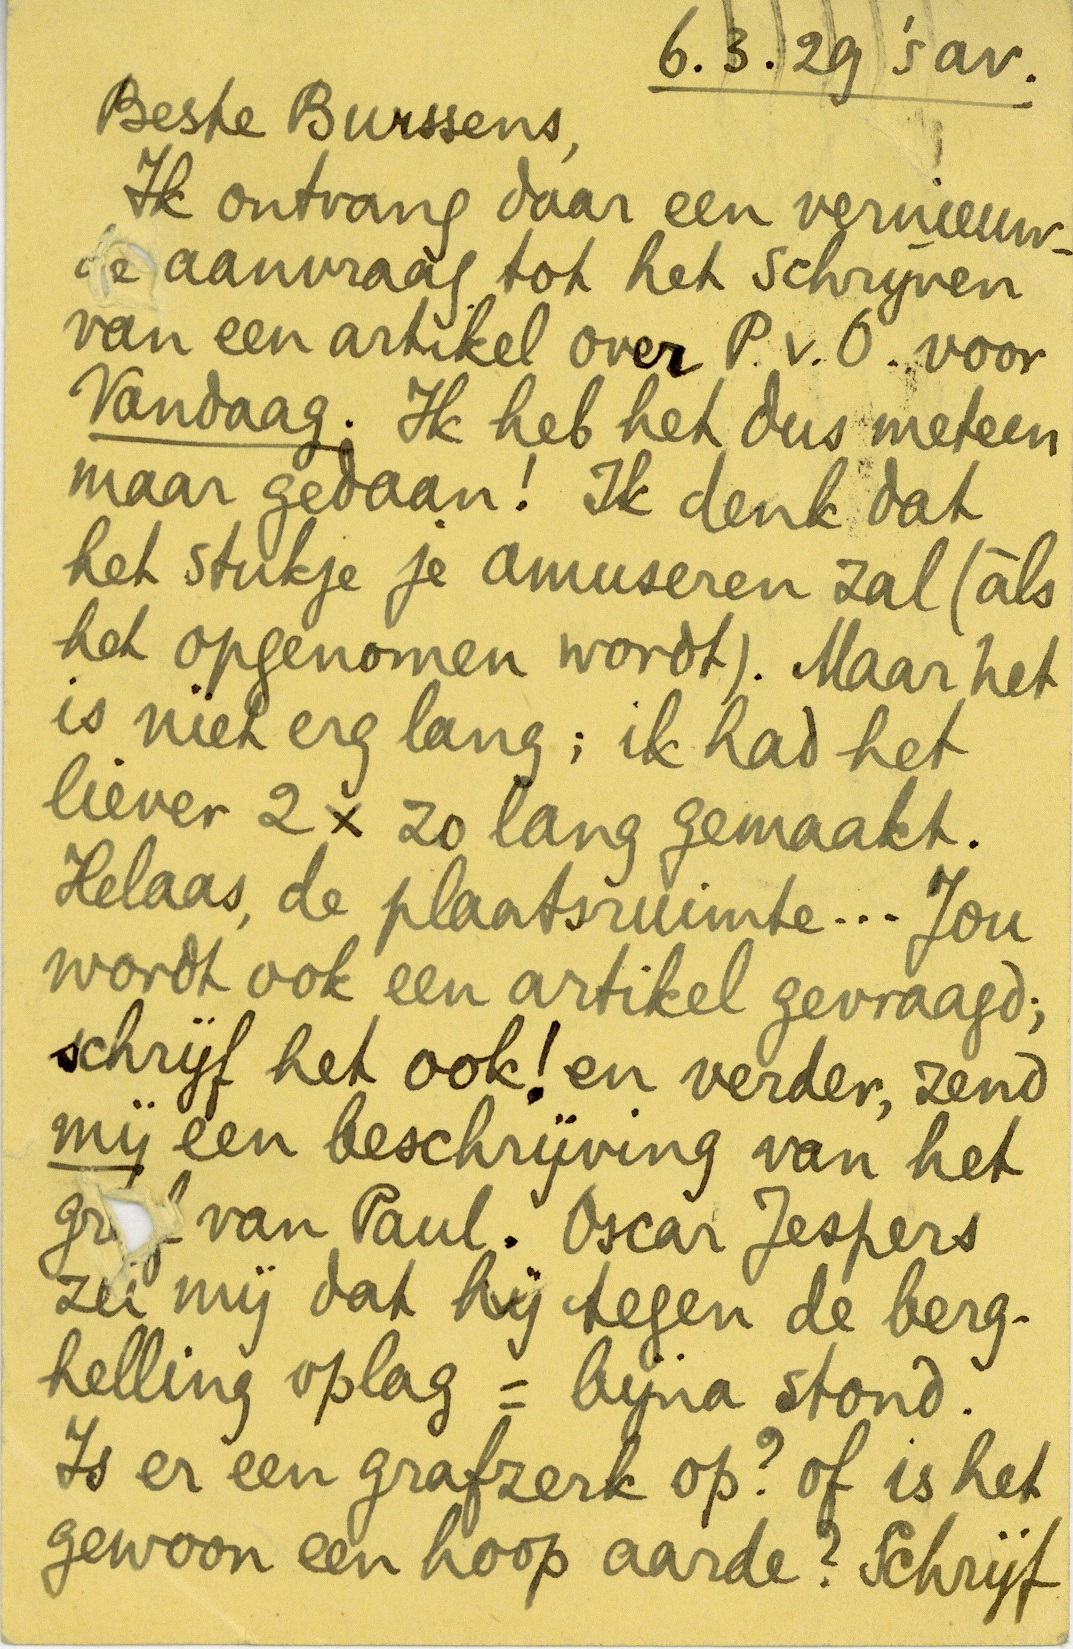 6.3.29 's av.
Beste Burssens,
Ik ontvang daar een vernieuw-
de aanvraag tot het schrijven
van een artikel over P. v. O. voor
Vandaag. Ik heb het dus meteen
maar gedaan! Ik denk dat
het stukje je amuseren zal (àls
het opgenomen wordt). Maar het
is niet erg lang; ik had het
liever 2 x zo lang gemaakt.
Helaas, de plaatsruimte... Jou
wordt ook een artikel gevraagd;
schrijf het ook! en verder, zend
mij een beschrijving van het
graf van Paul. Oscar Jespers
zei mij dat hij tegen de berg-
helling oplag = bijna stond.
Is er een grafzerk op? of is het
gewoon een hoop aarde? Schrijf